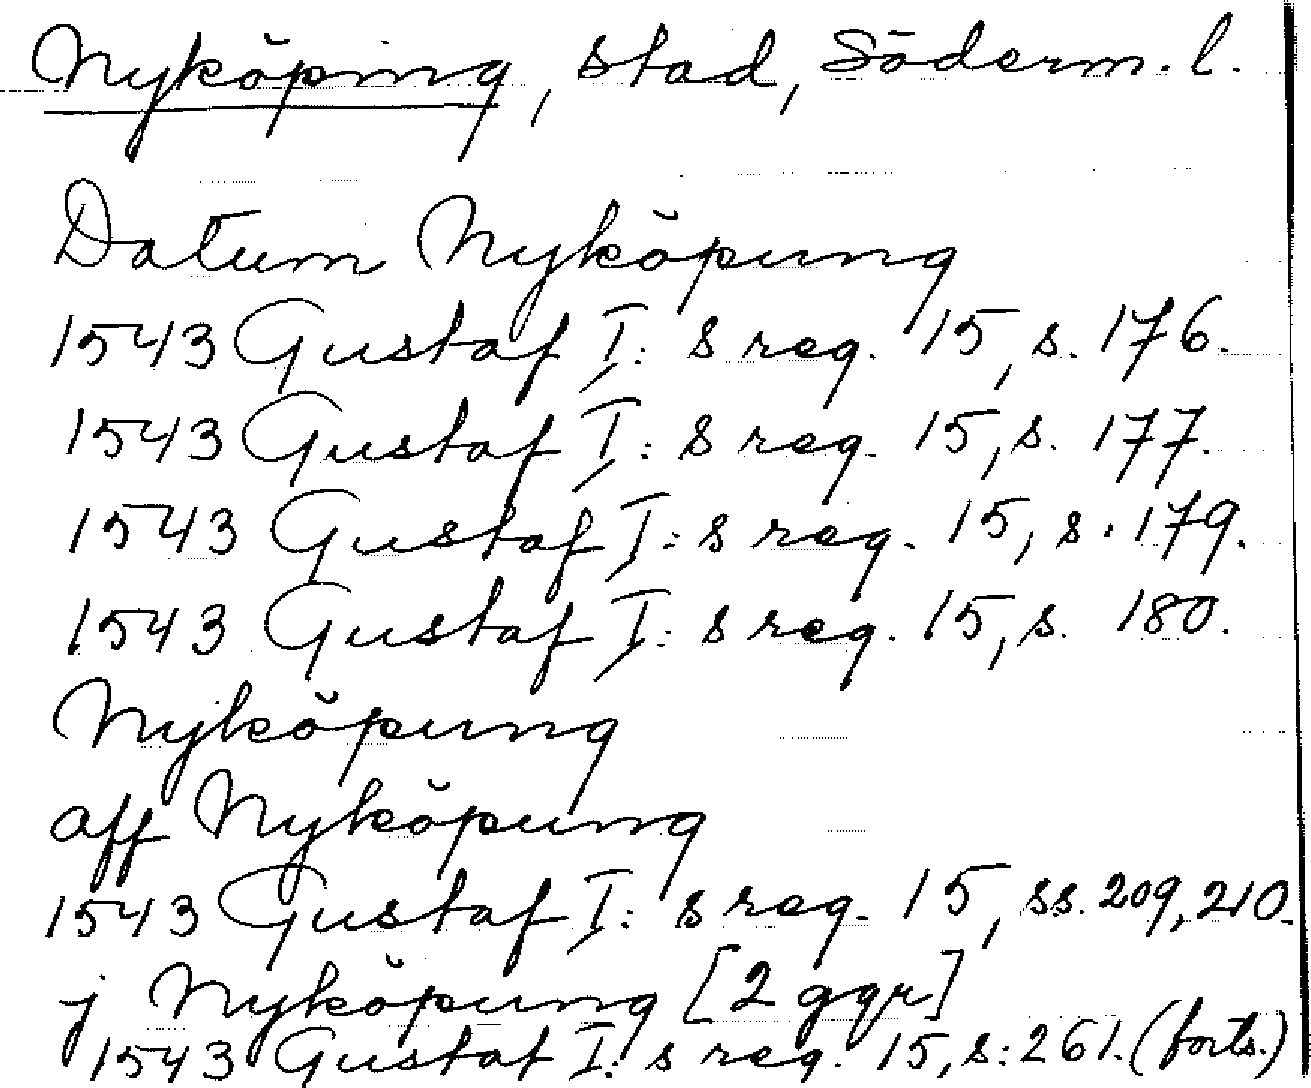 Nyköping, stad, Söderm. l.
Datum Nyköpung
1543 Gustaf I:s reg. 15, s. 176.
1543 Gustaf I:s reg. 15, s. 177.
1543 Gustaf I:s reg. 15, s. 179.
1543 Gustaf I:s reg. 15, s. 180.
Nyköpung
aff Nyköpung
1543 Gustaf I:s reg. 15, ss. 209, 210.
j Nyköpung [2 ggr]
1543 Gustaf I:s reg. 15, s: 261. (forts.)